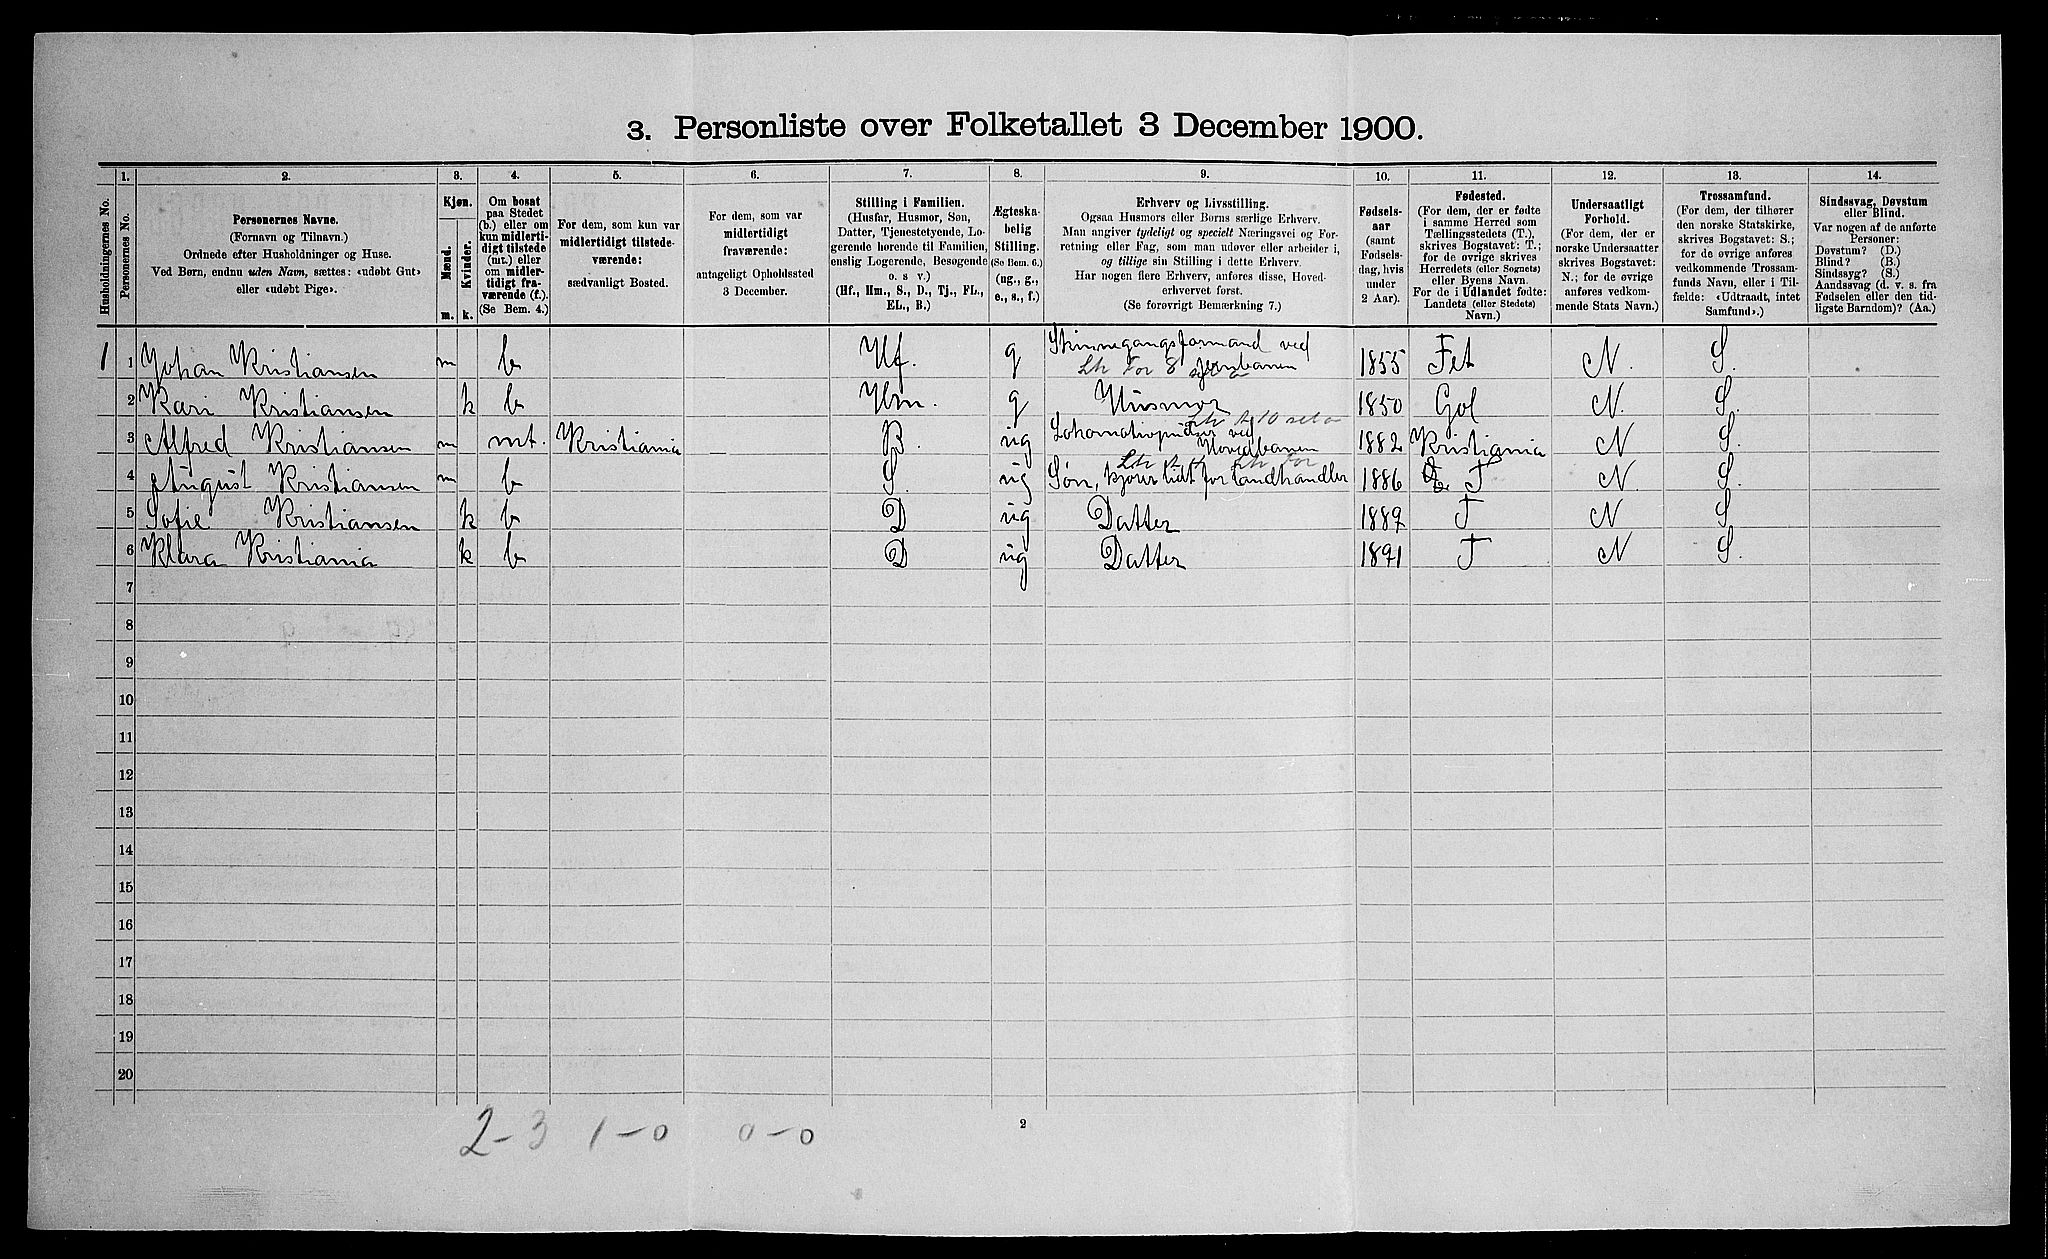 3. Personliste over Folketallet 3 December 1900.
1. 2. 3. 4. 5. 6. 7. 8. 9. 10. 11. 12. 13. 14.
Husholdningernes No.
Personernes No.
Personernes Navne.
(Fornavn og Tilnavn.)
Ordnede efter Husholdninger og Huse.
Ved Børn, endnu uden Navn, sættes: «udøbt Gut»
eller «udøbt Pige».
Kjøn.
Mænd.
Kvinder.
m. k.
Om bosat
paa Stedet
(b.) eller om
kun midlerti-
digt tilstede
(mt.) eller
om midler-
tidigt fra-
værende (f.).
(Se Bem. 4.)
For dem, som kun var
midlertidigt tilstede-
værende:
sædvanligt Bosted.
For dem, som var
midlertidigt
fraværende:
antageligt Opholdssted
3 December.
Stilling i Familien.
(Husfar, Husmor, Søn,
Datter, Tjenestetyende, Lo-
gerende hørende til Familien,
enslig Logerende, Besøgende
o. s v.)
(Hf., Hm., S., D., Tj., FL.,
EL., B.)
Ægteska-
belig
Stilling.
(Se Bem. 6.)
(ug., g.,
e., s., f.)
Erhverv og Livsstilling.
Ogsaa Husmors eller Børns særlige Erhverv.
Man angiver tydeligt og specielt Næringsvei og For-
retning eller Fag, som man udøver eller arbeider i,
og tillige sin Stilling i dette Erhverv.
Har nogen flere Erhverv, anføres disse, Hoved-
erhvervet først.
(Se forøvrigt Bemærkning 7.)
Fødsels-
aar
(samt
Fødsels-
dag, hvis
under
2 Aar).
Fødested.
(For dem, der er fødte
i samme Herred som
Tællingsstedets (T.),
skrives Bogstavet: T.;
for de øvrige skrives
Herredets (eller Sognets)
eller Byens Navn.
For de i Udlandet fødte:
Landets (eller Stedets)
Navn.)
Undersaatligt
Forhold.
(For dem, der er
norske Undersaatter
skrives Bogstavet:
N.; for de øvrige
anføres vedkom-
mende Stats Navn.)
Trossamfund.
(For dem, der tilhører
den norske Statskirke,
skrives Bogstavet: S.;
for de øvrige anføres
vedkommende Trossam-
funds Navn, eller i Til-
fælde: «Udtraadt, intet
Samfund».)
Sindssvag, Døvstum
eller Blind.
Var nogen af de anførte
Personer:
Døvstum? (D.)
Blind? (B.)
Sindssyg? (S.)
Aandssvag (d. v. s. fra
Fødselen eller den tid-
ligste Barndom)? (Aa.)
1 1 Johan Kristiansen m b Hf. g Skinnegangsformand ved Jernbanen 1855 Fet N. S.
2 Kari Kristiansen k b Hm. g Husmor 1850 Gol N. S.
3 Alfred Kristiansen m mt. Kristiania B. ug Lokomotivpudser ved Hovedbanen 1882 Kristiania N S.
4 August Kristiansen m b S ug Søn, kjører lidt for Landhandler 1886 T N. S.
5 Sofie Kristiansen k b D ug Datter 1889 T N S
6 Klara Kristiania k b D ug Datter 1891 T N S.
7
8
9
10
11
12
13
14
15
16
17
18
19
20
2
2-3 1-0 0-0